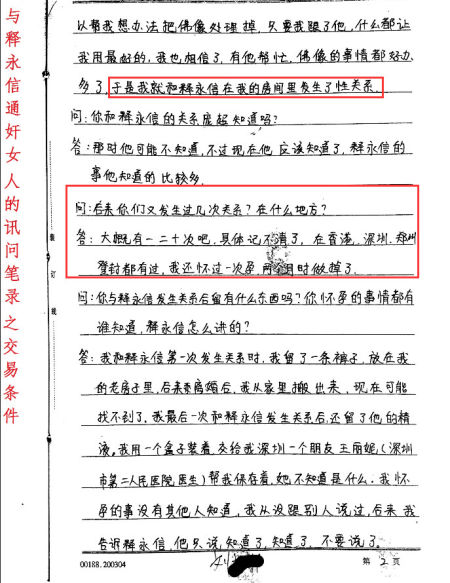 与释永信通奸女人的讯问笔录之交易条件
以帮我想办法把佛像处理掉，只要我跟了他，什么都让
我用最好的，我也相信了，有他帮忙，佛像的事情都好办
多了，于是我就和释永信在我的房间里发生了性关系。
问：你和释永信的关系庞超知道吗？
答：那时他可能不知道，不过现在他应该知道了，释永信的
事他知道的比较多。
问：后来你们又发生过几次关系？在什么地方？
答：大概有一二十次吧，具体记不清了，在香港、深圳、郑州
登封都有过，我还怀过一次孕，两个月时做掉了。
问：你与释永信发生关系后留有什么东西吗？你怀孕的事情都有
谁知道，释永信怎么讲的？
答：我和释永信第一次发生关系时，我留了一条裤子，放在我
的老房子里，后来离婚后，我从家里搬出来，现在可能
找不到了，我最后一次和释永信发生关系后还留了他的精
液，我用一个盒子装着，交给我深圳一个朋友王丽妮，（深圳
市第二人民医院医生）帮我保存着，她不知道是什么。我怀
孕的事没有其他人知道，我从没跟别人说过，后来我
告诉释永信，他只说，知道了，知道了，不要说了。
装订线
00188.200304
第2页